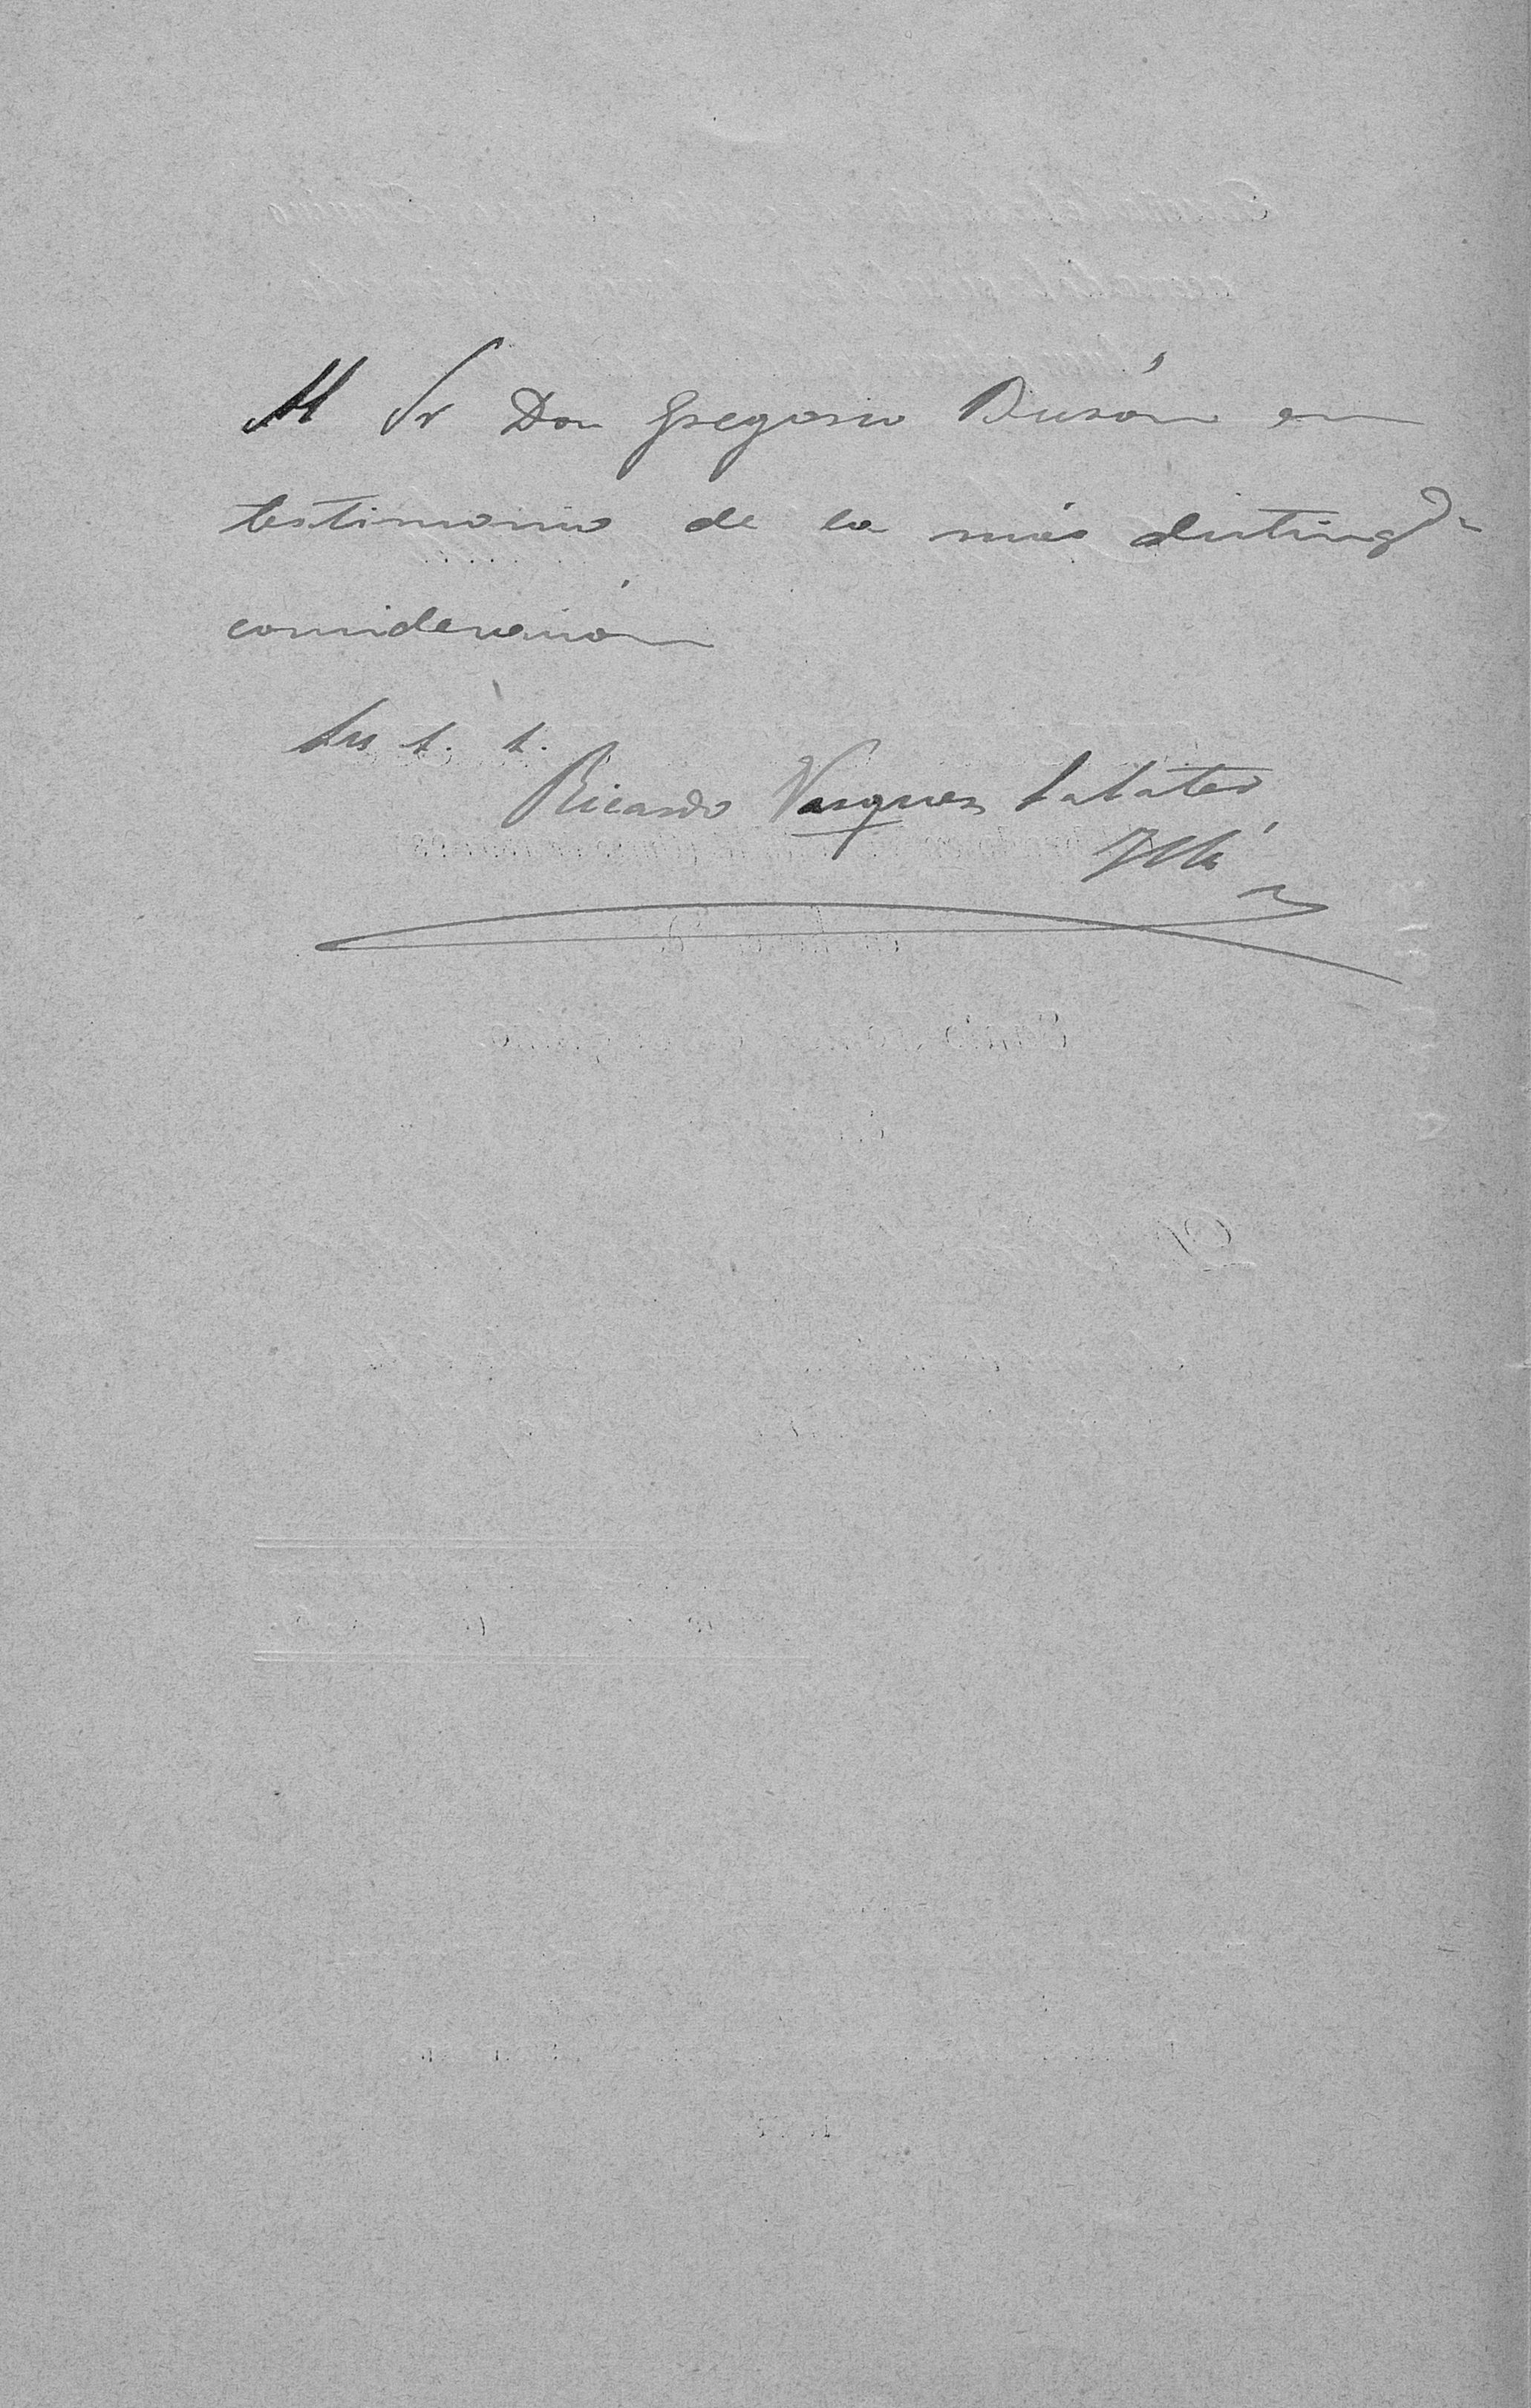 Al Sr Don Gregorio Busón en
testimonio de la más disting^da
consideración
Su s. s.
Ricardo Vasquez Sabater